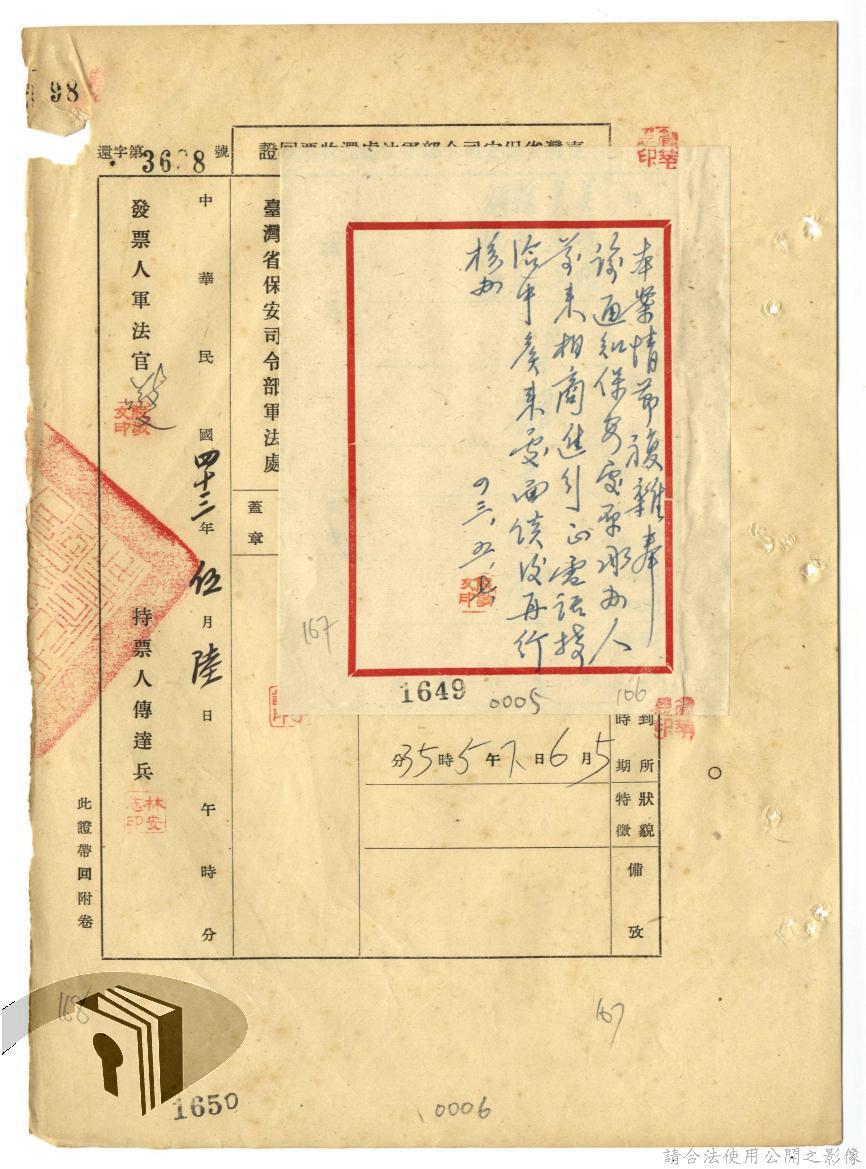 98
還字第3638號
臺灣省保安司令部軍法處還收票回證
本案情節複雜奉
諭通知保安處原承办人
前來相商進行正電話接
洽中俟來處面談後再行
核办
四三、五、七
167
1649
0005
166
到所時期
5月6日下午5時35分
狀貌特徵
備攷
臺灣省保安司令部軍法處
蓋章
中華民國四十三年伍月陸日午時分
發票人軍法官
持票人傳達兵
林安志印
此證帶回附卷
168
167
1650
0006
請合法使用公開之影像